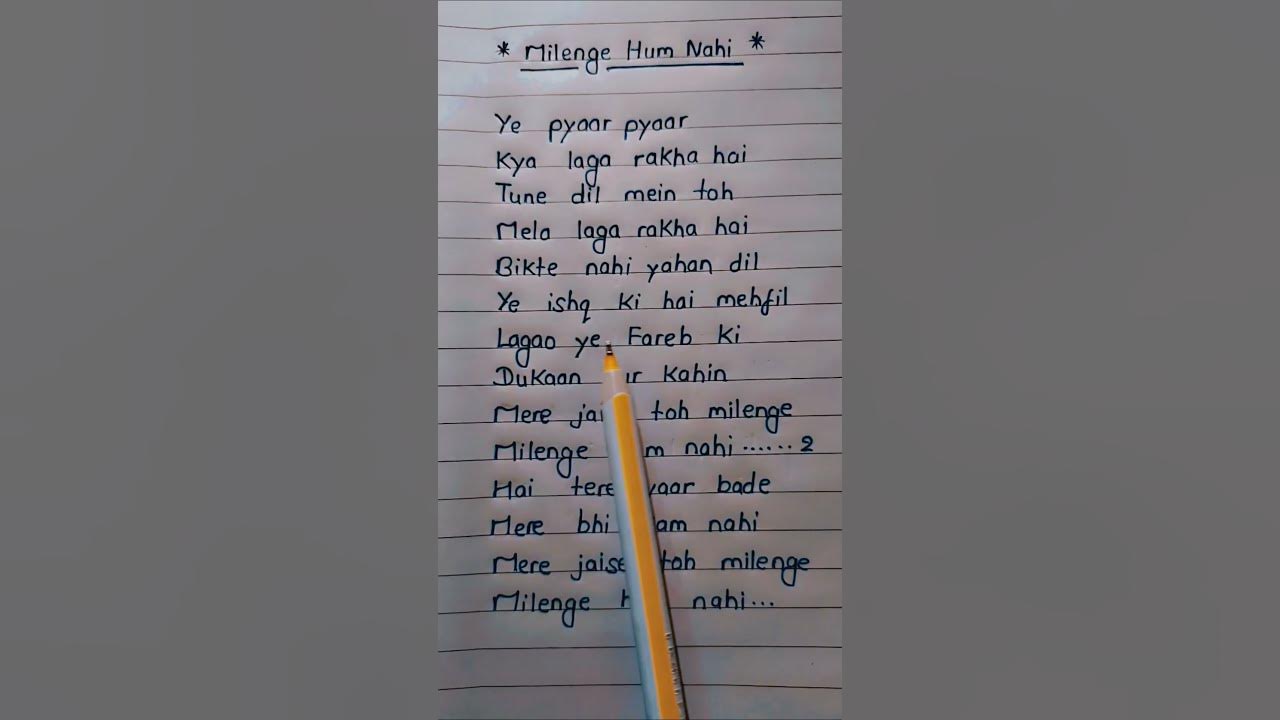 * Milenge Hum Nahi *
Ye pyaar pyaar
Kya laga rakha hai
Tune dil mein toh
Mela laga rakha hai
Bikte nahi yahan dil
Ye ishq ki hai mehfil
Lagao ye Fareb ki
Dukaan kahin
Mere toh milenge
Milenge nahi ...... 2
Hai tere bade
Mere bhi nahi
Mere jaise toh milenge
Milenge nahi ...